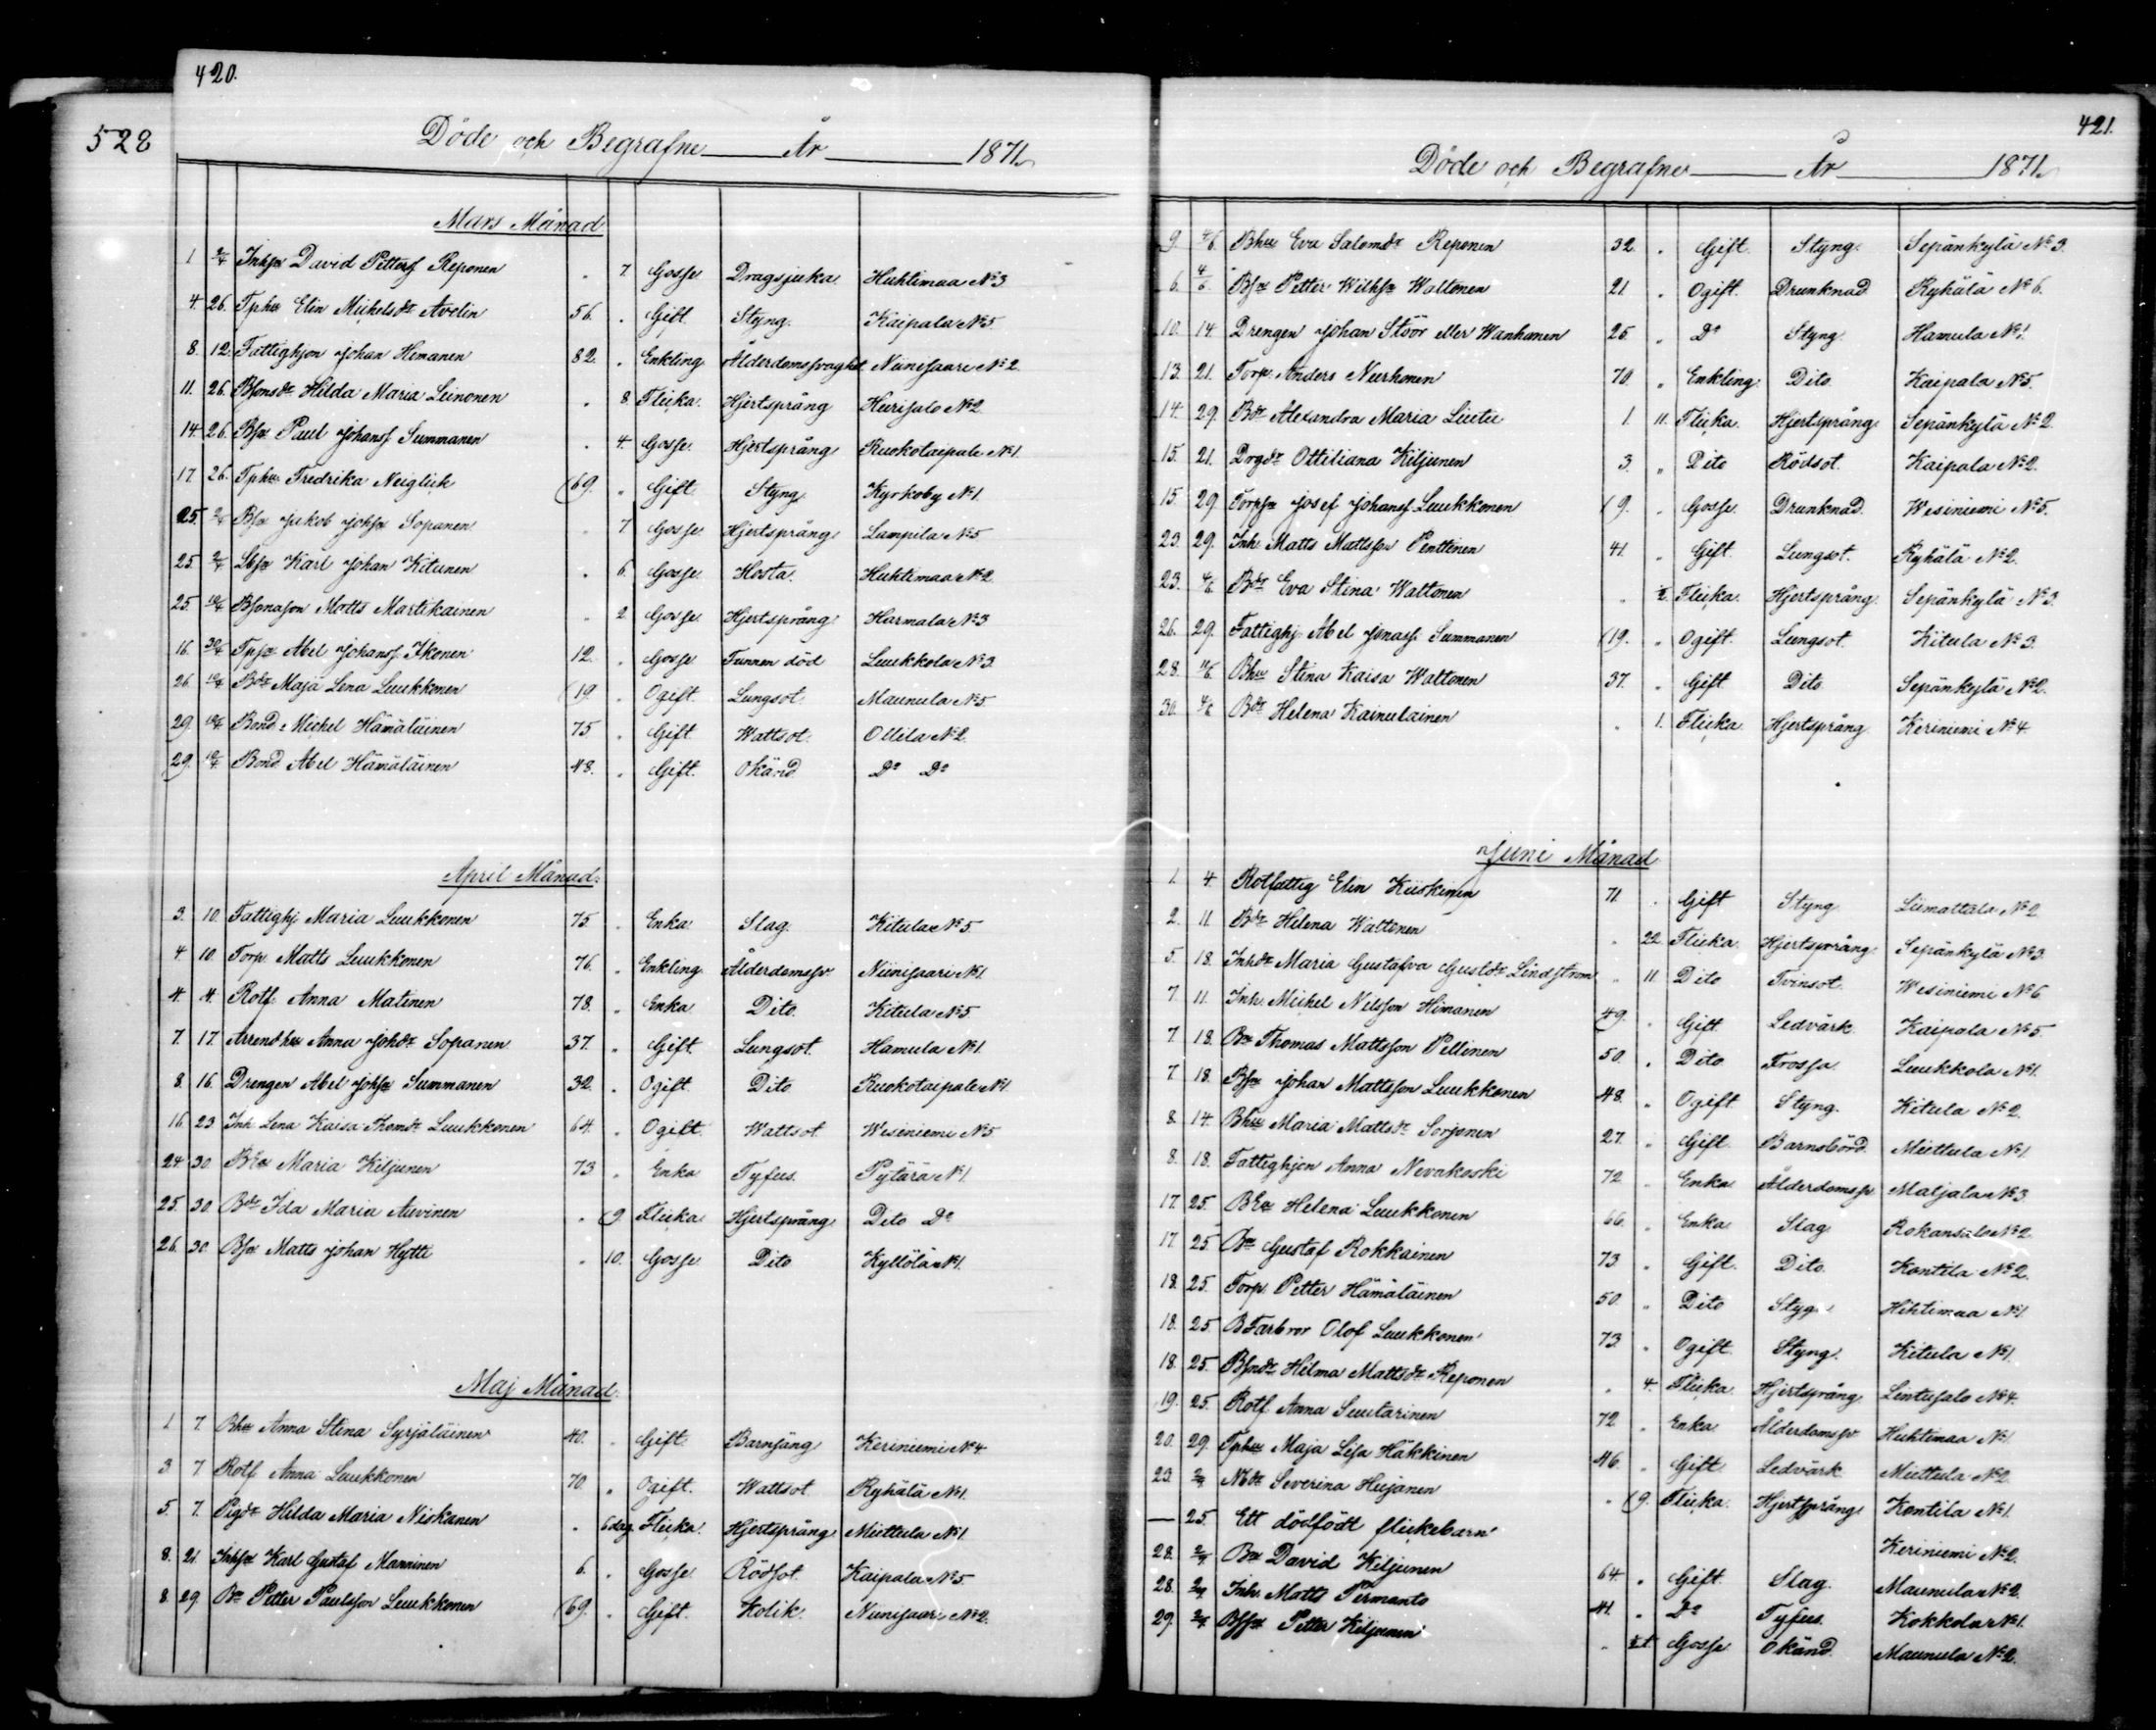 420.
528
Döde och Begrafne År 1871.
Mars Månad
1 2/4 Inhsn David Petterss Reponen " 7 Gosse Dragsjuka Huhtimaa No 3
4. 26. Tphu Elin Michelsdr Avelin 56. " Gift Styng. Kaipala No 5.
8. 12. Fattighjon Johan Hemanen 82. " Enkling Ålderdomssvaghet Niinisaari No 2.
11. 26. Bsonsdr Hilda Maria Leinonen " 8. Flicka. Hjertsprång Hurisalo No 2
14. 26. Bsn Paul Johanss Summanen " 4. Gosse Hjertsprång Ruokotaipale No 1.
17. 26. Tphu Fredrika Neiglick 69. " Gift Styng Kyrkoby No 1.
25. 2/4 Bsn Jakob Johsn Sopanen " 7 Gosse Hjertsprång Lampila No 5
25. 2/4 Karl Johan Kitunen " 6. Gosse Hosta. Huhtimaa No 2
25. 10/4 Bsonason Matts Martikainen " 2 Gosse Hjertsprång Harmala No 3
16. 30/4 Tpsn Abel Johanss. Ikonen 12. " Gosse Funnen död Luukkola No 3.
26. 10/4 Bdr Maja Lena Luukkonen 19 " Ogift Lungsot Maunula No 5.
29. 10/4 Bond. Michel Hämäläinen 75. " Gift. Wattsot. Ollila No 2
29. 10/4 Bond. Abel Hämäläinen 48. " Gift. Okänd Do Do
April Månad.
3. 10. Fattighj Maria Luukkonen 75. " Enka Slag. Kitula No 5.
4. 10. Torp. Matts Luukkonen 76. " Enkling. Ålderdomssv. Niinisaari No 1.
4. 4. Rotf. Anna Matinen 78. " Enka Dito. Kitula No 5
7. 17. Arrendhu Anna Johdr Sopanen 37. " Gift. Lungsot. Hamula No 1.
8. 16. Drengen Abel Johsn Summanen 32. " Ogift. Dito. Ruokotaipale No 1
16. 23. Inh. Lena Kaisa Thomdr Luukkonen 64. " Ogift. Wattsot Wesiniemi No 5
24. 30. BEa Maria Kiljunen 73 " Enka Tyfus. Pytärä No 1.
25. 30. Bdr Ida Maria Auvinen " 9. Flicka Hjertsprång Dito Do
26. 30. Bsn Matts Johan Hytti " 10. Gosse Dito Kyllölä No 1.
Maj Månad.
1 7. Bhu Anna Stina Syrjäläinen 40. " Gift. Barnsäng Keriniemi No 4
3. 7 Rotf Anna Luukkonen 70. " Ogift. Wattsot Ryhälä No 1.
5. 7. Pigdr Hilda Maria Niskanen " 6 dag. Flicka. Hjertsprång Miettula No 1.
8. 21. Inhsn Karl Gustaf Manninen 6. " Gosse Rödsot. Kaipala No 5.
8. 29. Bn Petter Paulsson Luukkonen 69. " Gift. Kolik. Niinisaari No 2.
421.
Döde och Begrafne År 1871.
9 4/6 Bhu Eva Salomdr Reponen 32. " Gift. Styng. Sepänkylä No 3.
6. 4/6 Bsn Petter Wilhsn Waltonen 21. " Ogift. Drunknad. Ryhälä No 6.
10. 14. Drengen Johan Stöör eller Wanhanen 25. " Do Styng. Hamula No 1.
13. 21. Torp. Anders Neerhonen 70. " Enkling. Dito. Kaipala No 5.
14. 29. Bdr Alexandra Maria Liutu 1. 11. Flicka. Hjertsprång Sepänkylä No 2.
15. 21. Drgdr Ottiliana Kiljunen 3. " Dito Rödsot. Kaipala No 2.
15 29. Torpsn Josef Johanss. Luukkonen 9. " Gosse Drunknad. Wesiniemi No 5.
23. 29. Inh. Matts Mattsson Penttinen 41. " Gift. Lungsot. Ryhälä No 2.
23. 4/6 Bdr Eva Stina Waltonen " ½ Flicka. Hjertsprång. Sepänkylä No 3.
26. 29. Fattighj. Abel Jonass. Summanen 19. " Ogift. Lungsot. Kitula No 3.
28. 11/6 Bhu Stina Kaisa Waltonen 37. " Gift. Dito. Sepänkylä No 2.
30. 4/6 Bdr Helena Kainulainen " 1. Flicka Hjertsprång Keriniemi No 4
Juni Månad
1. 4. Rotfattig Elin Kiiskinen 71. " Gift Styng. Liimattala No 2
2. 11. Bdr Helena Waltonen " 22. Flicka Hjertsprång Sepänkylä No 3.
5. 18. Inhdr Maria Gustafva Gustdr Lindstrom " 11. Dito Tvinsot. Wesiniemi No 6.
7. 11. Inh. Michel Nilsson Himanen 49. " Gift. Ledvärk Kaipala No 5.
7 18. Bn Thomas Mattsson Pellinen 50. " Dito Frossa. Luukkola No 1.
7. 18. Bsn Johan Mattsson Luukkonen 48. " Ogift. Styng. Kitula No 2.
8. 14. Bhu Maria Mattsdr Sorjonen 27. " Gift. Barnsbörd. Miettula No 1
8. 18. Fattighjon Anna Nevakoski 72 " Enka Ålderdomssv Maljala No 3
17. 25. BEa Helena Luukkonen 66. " Enka Slag Rokansalo No 2.
17. 25. Bn Gustaf Rokkainen 73. " Gift. Dito. Kontila No 2.
18. 25. Torp. Petter Hämäläinen 50. " Dito Styg. Hihtimaa No 1.
18. 25. BFarbror Olof Luukkonen 73. " Ogift Styng. Kitula No 1.
18. 25. Bsndr Hilma Mattsdr Reponen " 4. Flicka. Hjertsprång Lintusalo No 4.
19. 25. Rotf. Anna Suutarinen 72. " Enka Ålderdomssv. Huhtimaa No 1.
20. 29. Tphu Maja Lisa Häkkinen 46. " Gift. Ledvärk Miettula No 2
23. 2/7 Severina Heijanen " 9. Flicka. Hjertsprång Kontila No 1.
— 25. Ett dödfödt flickebarn Keriniemi No 2.
28. 2/7 Bn David Kiljunen 64. " Gift. Slag. Maunula No 2.
28. 2/7 Inh. Matts Permanto 41. " Do Tyfus. Kokkola No 1.
29. 2/7 Bssn Petter Kiljunen " Gosse Okänd Maunula No 2.